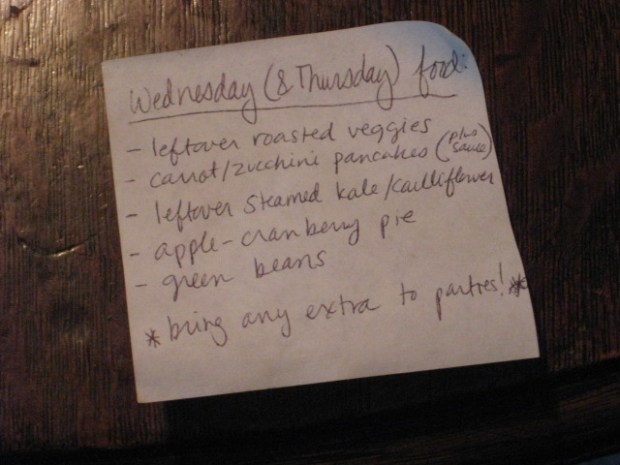 Wednesday (& Thursday) food:
- leftover roasted veggies
- carrot/zucchini pancakes (plus sauce)
- leftover steamed kale/caulliflower
- apple-cranberry pie
- green beans
* bring any extra to parties! *